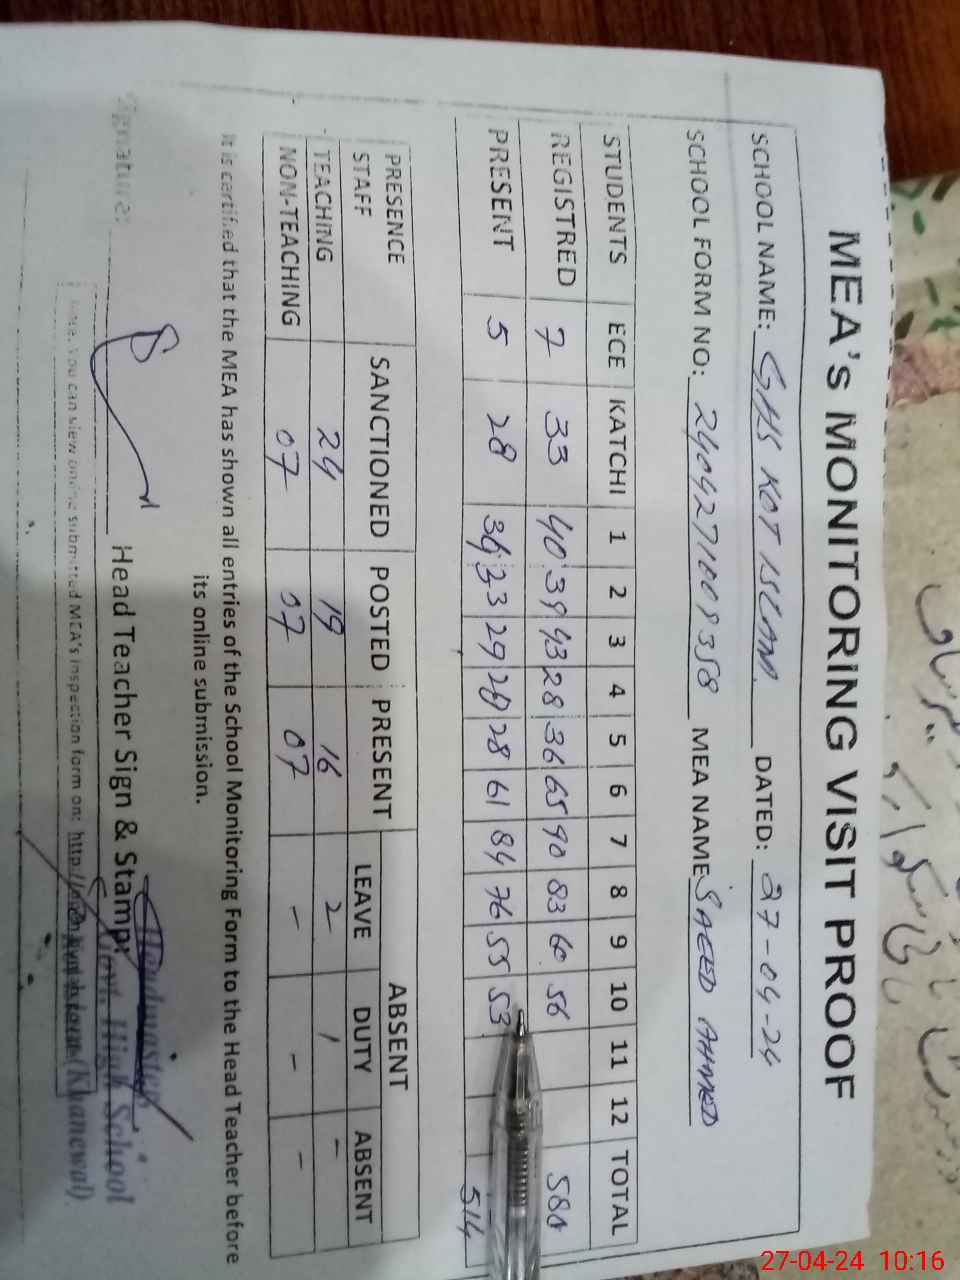 MEA's MONITORING VISIT PROOF
SCHOOL NAME: GHS KOT ISLAM DATED: 27-04-24
SCHOOL FORM NO: MEA NAME SAEED AHMED
STUDENTS ECE KATCHI 1 2 3 4 5 6 7 8 9 10 11 12 TOTAL
REGISTRED 7 33 40 39 43 28 36 65 90 83 60 56 580
PRESENT 5 28 34 33 29 28 28 61 84 76 55 53 514
PRESENCE STAFF SANCTIONED POSTED PRESENT ABSENT
LEAVE DUTY ABSENT
TEACHING 24 19 16 2 1 -
NON-TEACHING 07 07 07 - - -
It is certified that the MEA has shown all entries of the School Monitoring Form to the Head Teacher before
its online submission.
Signature: Head Teacher Sign & Stamp:
Headmaster
Govt. High School
(Khanewal)
You can view online submitted MEA's inspection form on:
27-04-24 10:16